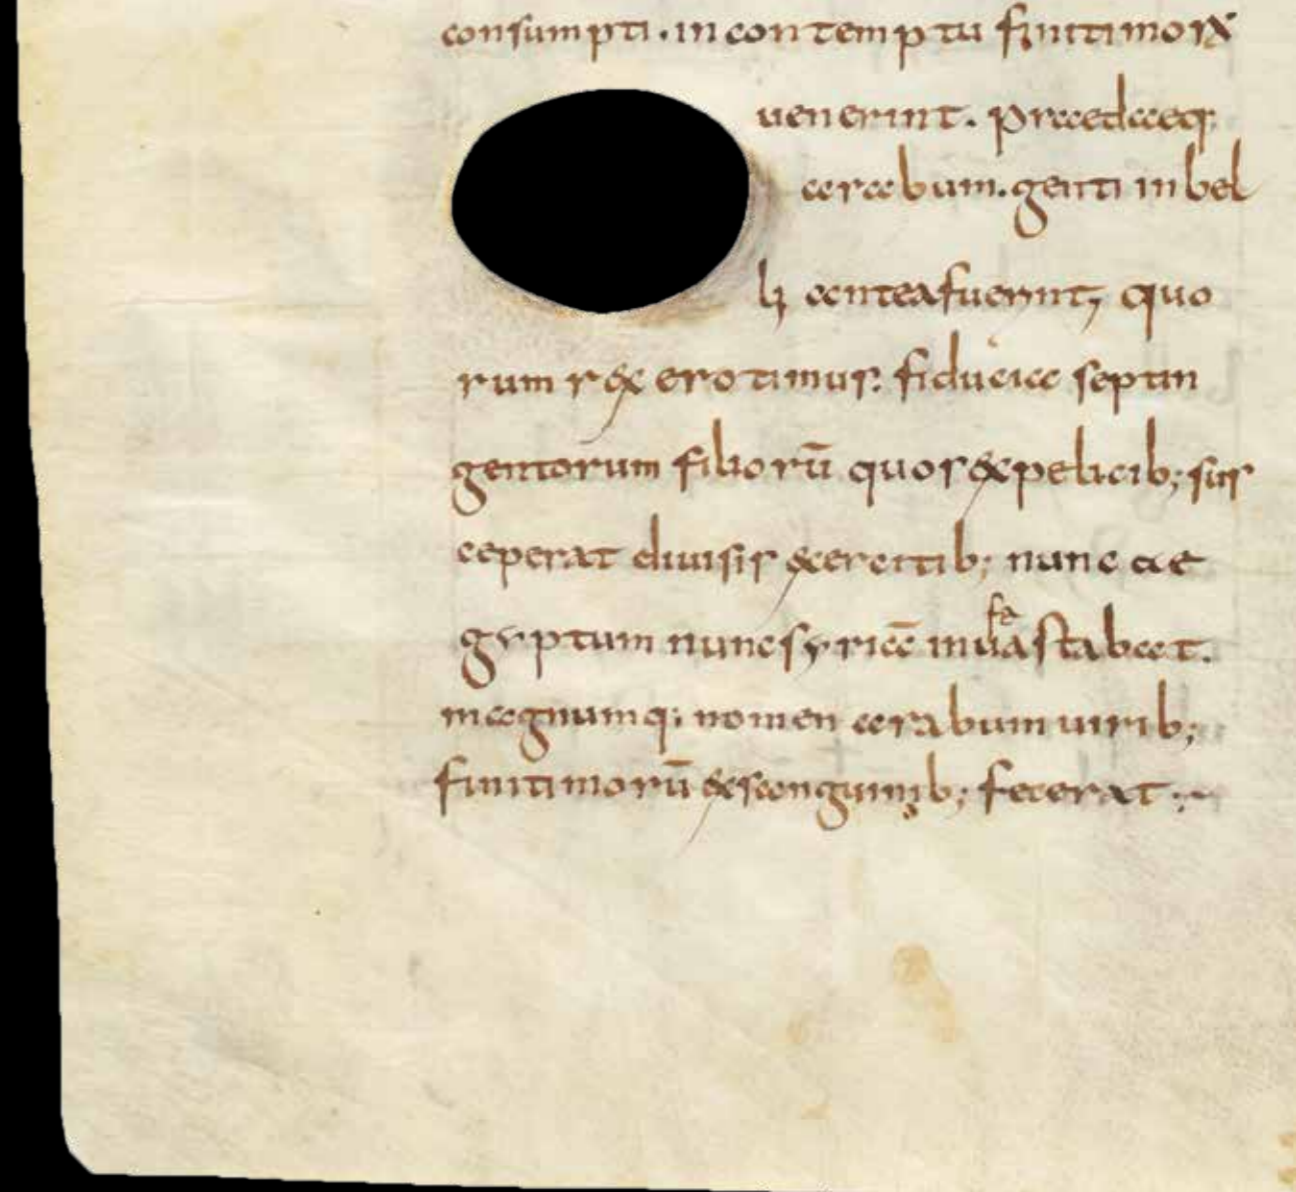 consumpti. in contemptu finitimorꝝ
uenerint. praedaeq;
arabum. genti inbel
li antea fuerint, quo
rum rex erotimus. fiducia septin
gentorum filiorū quos expelicib; sus
ceperat diuisis exercitib; nunc ae
gyptum nunc syriā infeuastabat.
magnumq; nomen arabum uirib;
finitimorū exsanguinib; fecerat